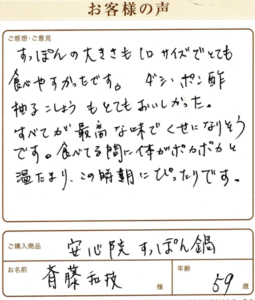 お客様の声
ご感想・ご意見
すっぽんの大きさも1口サイズでとても
食べやすかったです。 ダシ・ポン酢
柚子こしょうもとてもおいしかった。
すべてが最高な味でくせになりそう
です。食べてる間に体がポカポカと
温たまり、この時期にぴったりです。
ご購入商品
安心院すっぽん鍋
お名前
斉藤和枝 様
年齢
59 歳